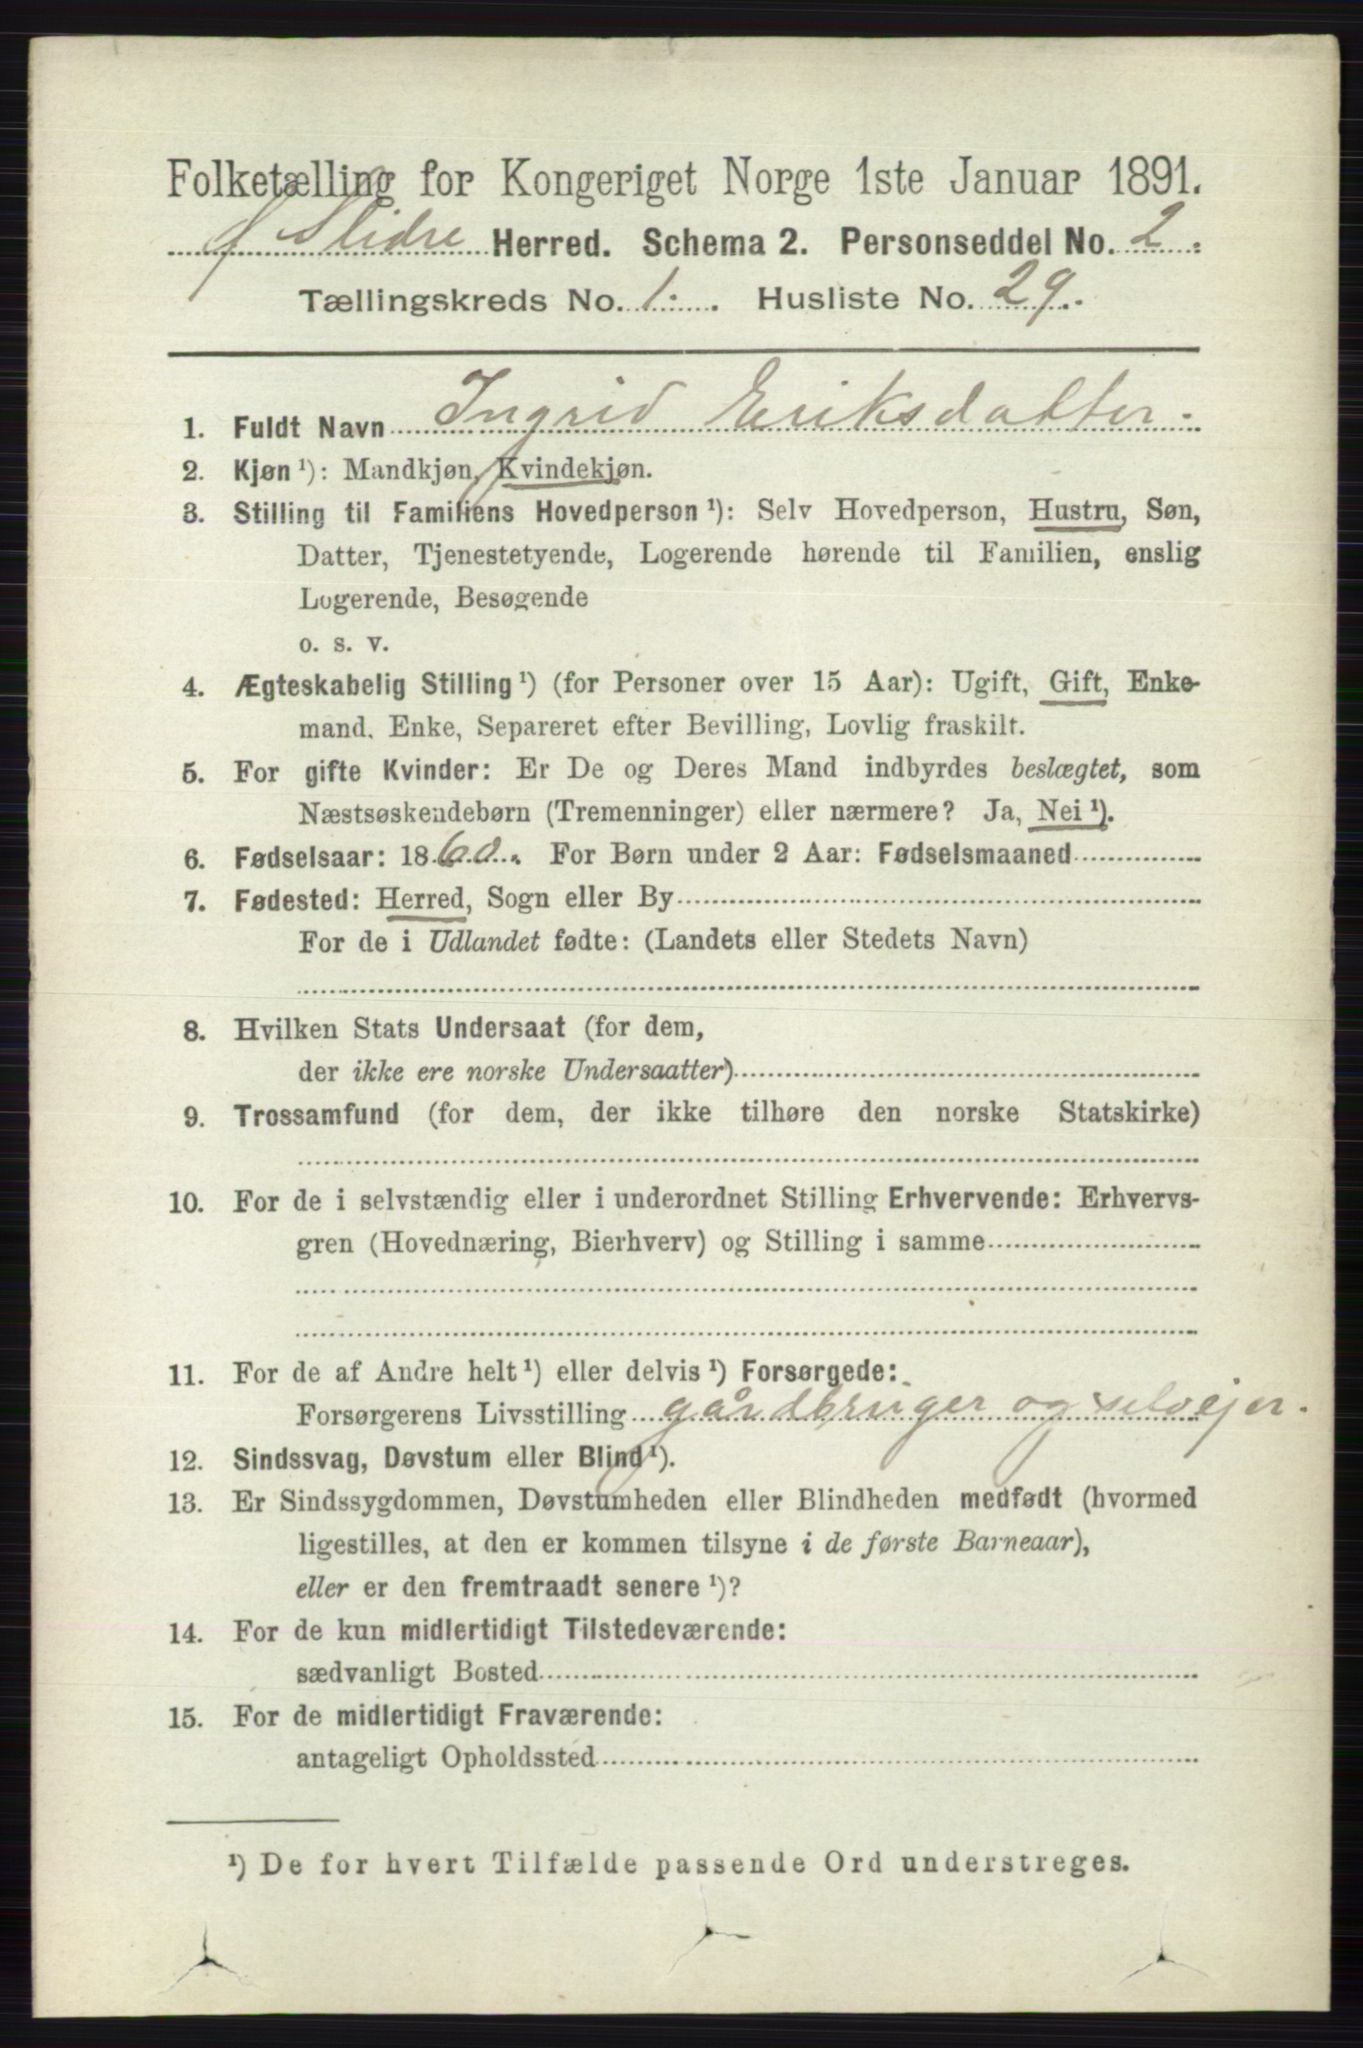 Folketælling for Kongeriget Norge 1ste Januar 1891.
S Slidre Herred. Schema 2. Personseddel No. 2.
Tællingskreds No. 1. Husliste No. 29.
1. Fuldt Navn Ingrid Eriksdatter.
2. Kjøn ¹): Mandkjøn, Kvindekjøn.
3. Stilling til Familiens Hovedperson ¹): Selv Hovedperson, Hustru, Søn,
Datter, Tjenestetyende, Logerende hørende til Familien, enslig
Logerende, Besøgende
o. s. v.
4. Ægteskabelig Stilling ¹) (for Personer over 15 Aar): Ugift, Gift, Enke-
mand, Enke, Separeret efter Bevilling, Lovlig fraskilt.
5. For gifte Kvinder: Er De og Deres Mand indbyrdes beslægtet, som
Næstsøskendebørn (Tremenninger) eller nærmere? Ja, Nei ¹).
6. Fødselsaar: 1860. For Børn under 2 Aar: Fødselsmaaned
7. Fødested: Herred, Sogn eller By
For de i Udlandet fødte: (Landets eller Stedets Navn)
8. Hvilken Stats Undersaat (for dem,
der ikke ere norske Undersaatter)
9. Trossamfund (for dem, der ikke tilhøre den norske Statskirke)
10. For de i selvstændig eller i underordnet Stilling Erhvervende: Erhvervs-
gren (Hovednæring, Bierhverv) og Stilling i samme
11. For de af Andre helt ¹) eller delvis ¹) Forsørgede:
Forsørgerens Livsstilling gårdbruger og selvejer.
12. Sindssvag, Døvstum eller Blind ¹).
13. Er Sindssygdommen, Døvstumheden eller Blindheden medfødt (hvormed
ligestilles, at den er kommen tilsyne i de første Barneaar),
eller er den fremtraadt senere ¹)?
14. For de kun midlertidigt Tilstedeværende:
sædvanligt Bosted
15. For de midlertidigt Fraværende:
antageligt Opholdssted
¹) De for hvert Tilfælde passende Ord understreges.